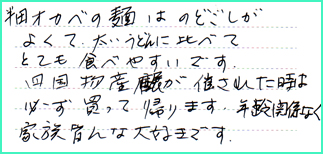 細オカベの麺はのどごしが
よくて、太いうどんに比べて
とても食べやすいです。
四国物産展が催された時は
必ず買って帰ります。年齢関係なく
家族皆んな大好きです。